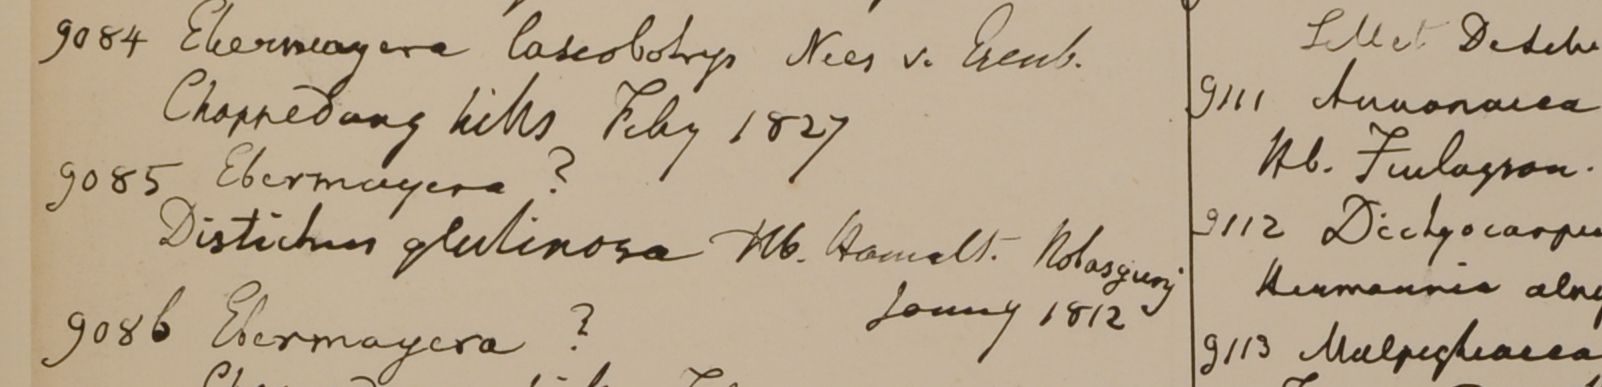 9084 Ebermayera lasiobotrys Nees v. Esenb.
Chappedong hills Feby 1827
9085 Ebermayera ?
Distichus glutinosa Hb. Hamilt. Nobasgunj
Jany 1812
9086 Ebermayera ?
9111 Annonacea
Hb. Finlayson.
9112 Dictyocarpu
Hermannia
9113 Malpighiacea